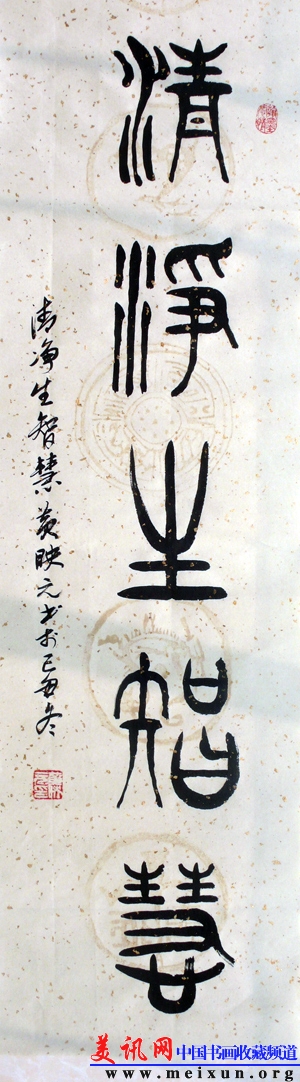 清淨生智慧
清净生智慧黄映元书于己丑冬
美讯网 中国书画收藏频道
www.meixun.org